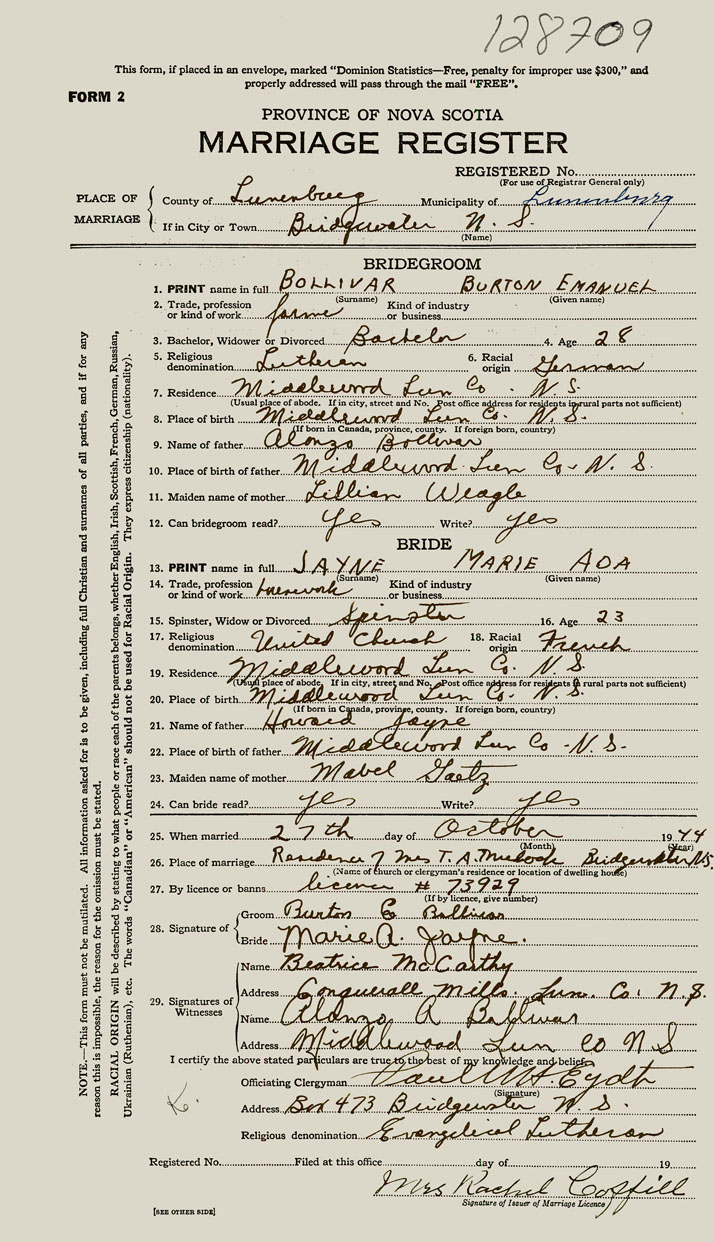 128709
This form, if placed in an envelope, marked “Dominion Statistics—Free, penalty for improper use $300,” and
properly addressed will pass through the mail “FREE”.
FORM 2
PROVINCE OF NOVA SCOTIA
MARRIAGE REGISTER
REGISTERED No.
(For use of Registrar General only)
PLACE OF MARRIAGE
County of Lunenburg Municipality of Lunenburg
If in City or Town Bridgewater N. S.
(Name)
BRIDEGROOM
1. PRINT name in full BOLLIVAR BURTON EMANUEL
(Surname) (Given name)
2. Trade, profession or kind of work farme Kind of industry or business
3. Bachelor, Widower or Divorced Bachelor 4. Age 28
5. Religious denomination Lutheran 6. Racial origin German
7. Residence Middlewood Lun Co. N. S.
(Usual place of abode. If in city, street and No. Post office address for residents in rural parts not sufficient)
8. Place of birth Middlewood Lun Co. N. S.
(If born in Canada, province, county. If foreign born, country)
9. Name of father Alonzo Bollivar
10. Place of birth of father Middlewood Lun Co- N. S.
11. Maiden name of mother Lillian Weagle
12. Can bridegroom read? yes Write? yes
BRIDE
13. PRINT name in full JAYNE MARIE ADA
(Surname) (Given name)
14. Trade, profession or kind of work housework Kind of industry or business
15. Spinster, Widow or Divorced Spinster 16. Age 23
17. Religious denomination United Church 18. Racial origin French
19. Residence Middlewood Lun Co. N. S.
(Usual place of abode. If in city, street and No. Post office address for residents in rural parts not sufficient)
20. Place of birth Middlewood Lun Co. N. S.
(If born in Canada, province, county. If foreign born, country)
21. Name of father Howard Jayne
22. Place of birth of father Middlewood Lun Co - N. S.
23. Maiden name of mother Mabel Gaetz
24. Can bride read? yes Write? yes
25. When married 27th day of October 1944
(Month) (Year)
26. Place of marriage Residence of Mrs T. A. Bridgewater N.S.
(Name of church or clergyman's residence or location of dwelling house)
27. By licence or banns licence # 73929
(If by licence, give number)
28. Signature of
Groom Burton E Bollivar
Bride Marie A. Jayne.
29. Signatures of Witnesses
Name Beatrice McCarthy
Address Conquerall Mills. Lun. Co. N.S.
Name Alonzo A Bollivar
Address Middlewood Lun CO N S
I certify the above stated particulars are true to the best of my knowledge and belief.
Officiating Clergyman Eydt
(Signature)
Address Box 473 Bridgewater N. S.
Religious denomination Evangelical Lutheran
Registered No. Filed at this office day of 19
Mrs Rachel Corfill
Signature of Issuer of Marriage Licence
[SEE OTHER SIDE]
NOTE.—This form must not be mutilated. All information asked for is to be given, including full Christian and surnames of all parties, and if for any
reason this is impossible, the reason for the omission must be stated.
RACIAL ORIGIN will be described by stating to what people or race each of the parents belongs, whether English, Irish, Scottish, French, German, Russian,
Ukrainian (Ruthenian), etc. The words “Canadian” or “American” should not be used for Racial Origin. They express citizenship (nationality).